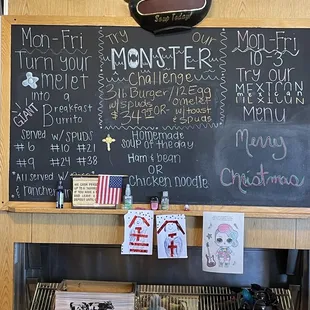 Soup Today!
Mon-Fri
Turn your
omelet
into a
GIANT
Breakfast
Burrito
Served w/ spuds
#6 #10 #21
#9 #24 #38
*All served w/
& ranchero
Try Our
MONSTER
Challenge
3lb Burger/12 Egg
w/spuds omelet
$34.99 -OR- w/toast
& spuds
Homemade
soup of the day
Ham & bean
OR
Chicken noodle
Mon-Fri
10-3
Try our
MEXICAN
MEXICAN
MEXICAN
Menu
Merry
Christmas